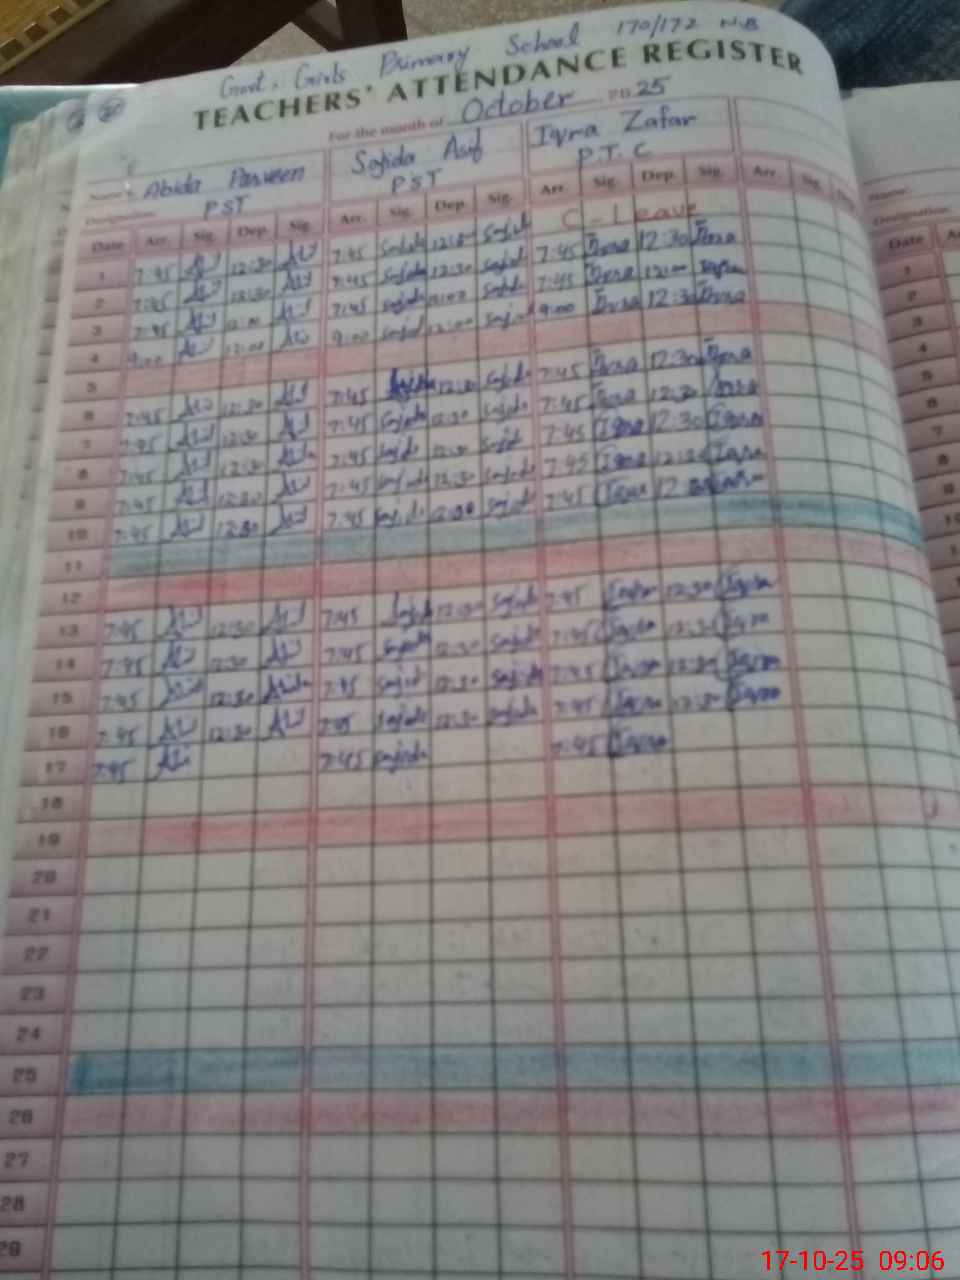 Govt. Girls Primary School 170/172 N.B
TEACHERS' ATTENDANCE REGISTER
For the month of October 25
Name Abida Parveen Sajida Asif Iqra Zafar
Designation PST PST P.T.C
Date Arr. Sig. Dep. Sig. Arr. Sig. Dep. Sig. Arr. Sig. Dep. Sig. Arr. Sig.
1 7:45 12:30 7:45 Sajida 12:30 Sajida C-Leave
2 7:45 12:30 7:45 Sajida 12:30 Sajida 7:45 Iqra 12:30 Iqra
3 7:45 12:00 7:45 Sajida 12:00 Sajida 7:45 Iqra 12:00 Iqra
4 9:00 12:00 9:00 Sajida 12:00 Sajida 9:00 Iqra 12:30 Iqra
5
6 7:45 12:30 7:45 Sajida 12:30 Sajida 7:45 Iqra 12:30 Iqra
7 7:45 12:30 7:45 Sajida 12:30 Sajida 7:45 Iqra 12:30 Iqra
8 7:45 12:30 7:45 Sajida 12:30 Sajida 7:45 Iqra 12:30 Iqra
9 7:45 12:30 7:45 Sajida 12:30 Sajida 7:45 Iqra 12:30 Iqra
10 7:45 12:30 7:45 Sajida 12:30 Sajida 7:45 Iqra 12:30 Iqra
11
12
13 7:45 12:30 7:45 Sajida 12:30 Sajida 7:45 Iqra 12:30 Iqra
14 7:45 12:30 7:45 Sajida 12:30 Sajida 7:45 Iqra 12:30 Iqra
15 7:45 12:30 7:45 Sajida 12:30 Sajida 7:45 Iqra 12:30 Iqra
16 7:45 12:30 7:45 Sajida 12:30 Sajida 7:45 Iqra 12:30 Iqra
17 7:45 7:45 Sajida 7:45 Iqra
18
19
20
21
22
23
24
25
26
27
28
29
Name.
Designation
Date
1
2
3
4
5
6
7
8
9
17-10-25 09:06